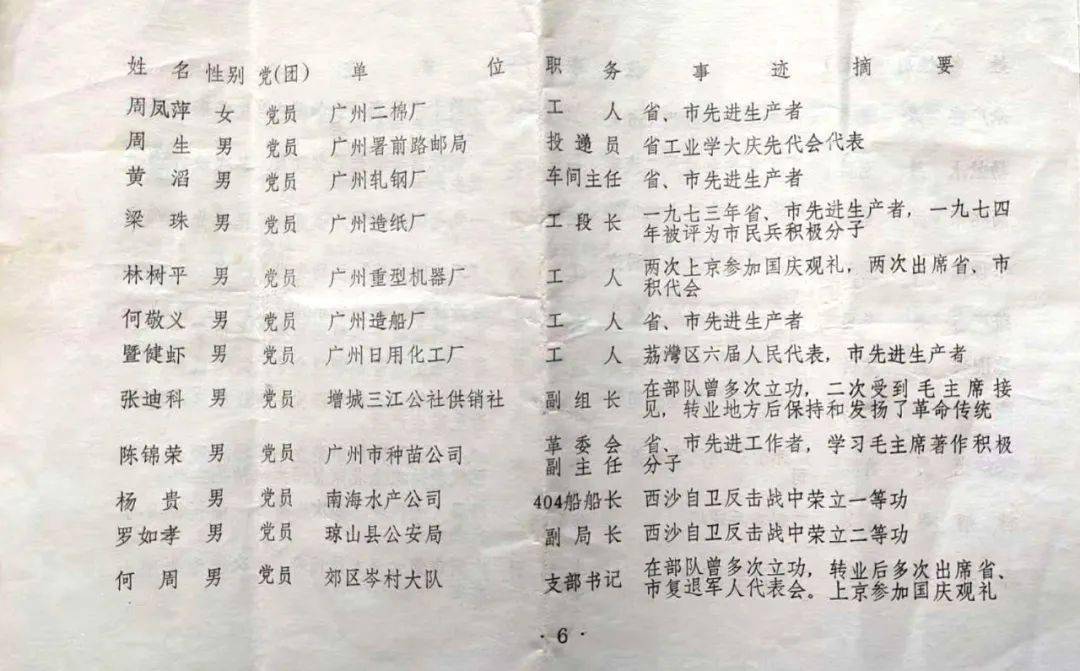 姓 名 性别 党(团) 单 位 职 务 事 迹 摘 要
周凤萍 女 党员 广州二棉厂 工 人 省、市先进生产者
周 生 男 党员 广州署前路邮局 投递员 省工业学大庆先代会代表
黄 滔 男 党员 广州轧钢厂 车间主任 省、市先进生产者
梁 珠 男 党员 广州造纸厂 工段长 一九七三年省、市先进生产者，一九七四
年被评为市民兵积极分子
林树平 男 党员 广州重型机器厂 工 人 两次上京参加国庆观礼，两次出席省、市
积代会
何敬义 男 党员 广州造船厂 工 人 省、市先进生产者
暨健虾 男 党员 广州日用化工厂 工 人 荔灣区六届人民代表，市先进生产者
张迪科 男 党员 增城三江公社供销社 副组长 在部队曾多次立功，二次受到毛主席接
见，转业地方后保持和发扬了革命传统
陈锦荣 男 党员 广州市种苗公司 革委会 省、市先进工作者，学习毛主席著作积极
副主任 分子
杨 贵 男 党员 南海水产公司 404船船长 西沙自卫反击战中荣立一等功
罗如孝 男 党员 琼山县公安局 副局长 西沙自卫反击战中荣立二等功
何 周 男 党员 郊区岑村大队 支部书记 在部队曾多次立功，转业后多次出席省、
市复退军人代表会。上京参加国庆观礼
·6·